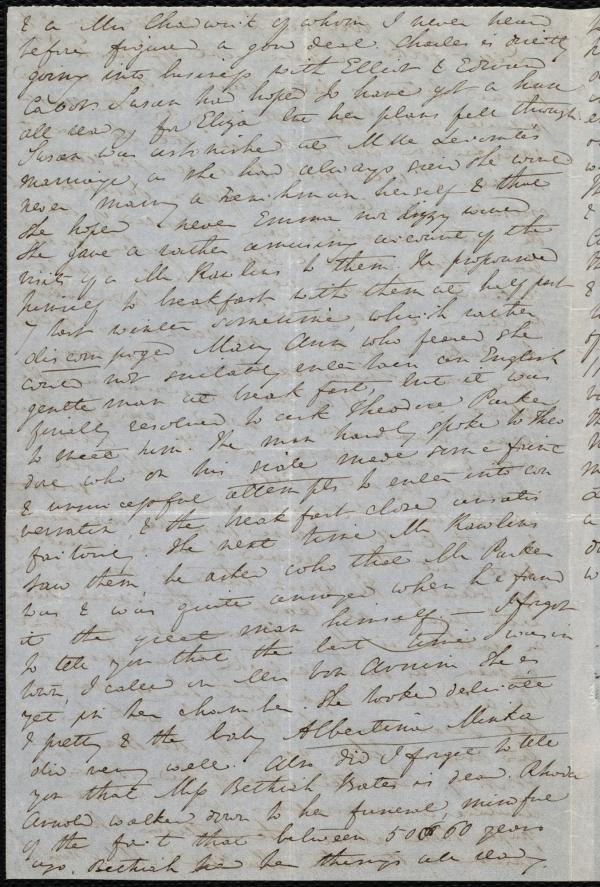 & a Mrs Chadwick of whom I never heard
before figured a good deal. Charles is directly
going into business with Elliot & Edward
Cabot. Susan had hoped to have got a house
all ready for Eliza but her plans fell through.
Susan was astonished at Mlle
marriage, as she had always said she would
never marry a Frenchman herself & that
she hoped never Emma nor Lizzy would
She gave a rather amusing account of the
visit of a Mr Rawlins to them. He propounded
himself to breakfast with them at half past
7 last winter sometime which rather
discomposed Mary Ann, who feared she
could not suitably entertain an English
gentleman at breakfast, but it was
finally resolved to ask Theodore Parker
to meet him. The man hardly spoke to Theo
dore who on his side made some faint
& unsuccessful attempts to enter into con
versation, & the breakfast closed
The next time Mr Rawlins
saw them he asked who that Mr Parker
was & was quite annoyed when he found
it the great man himself — I forgot
to tell you that the last time I was in
town I called on Mrs von Arnim She is
yet in her chamber. She looked delicate
& pretty & the baby Albertina Minka
did very well. Also did I forget to tell
you that Miss Bethiah Bates is dead. Rhoda
Arnold walked down to her funeral mindful
of the fact that between 50 & 60 years
ago. Bethiah had her things all ready.